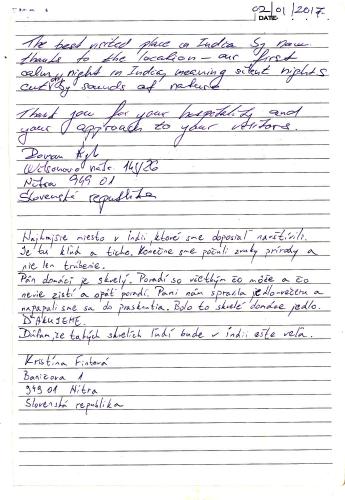 DATE 02/01/2017.
The best visited place in India by now
thanks to the location - our first
calm night in India, meaning silent nights
only sounds of nature
Thank you for your hospitality and
your approach to your visitors.
Wilsonovo nábr. 145/26
Nitra 949 01
Slovenská republika
Najkrajšie miesto v Indii ktoré sme doposiaľ navštívili.
Je tu kľud a ticho, konečne sme počuli zvuky prírody a
nie len trúbenie.
Pán domáci je skvelý. Poradí so všetkým čo môže a čo
nevie zistí a opäť poradí. Pani nám spravila jedlo-večeru a
napapali sme sa do prasknutia. Bolo to skvelé domáce jedlo.
ĎAKUJEME.
Dúfam, že takých skvelých ľudí bude v Indii ešte veľa.
Kristína Fintová
Banícova 1
949 01 Nitra
Slovenská republika